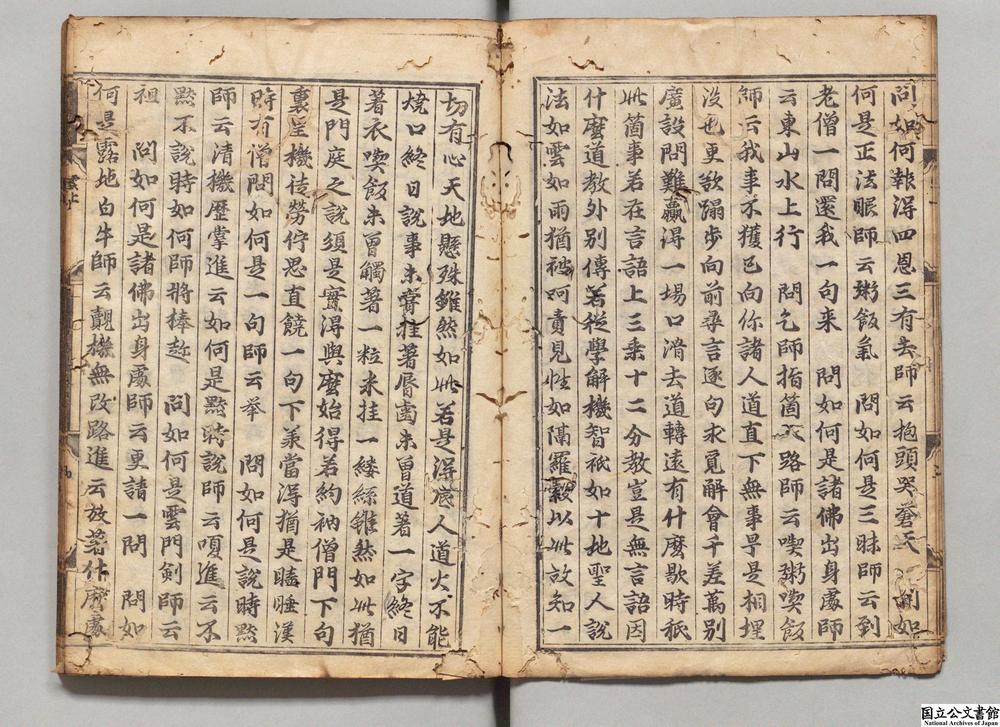 問如何報得四恩三有去師云抱頭哭蒼天 問如
何是正法眼師云粥飯氣 問如何是三昧師云到
老僧一問還我一句来 問如何是諸佛出身處師
云東山水上行 問乞師指箇入路師云喫粥喫飯
師云我事不獲已向你諸人道直下無事早是相埋
没也更欲蹋步向前尋言逐句求覓解會千差萬別
廣設問難贏得一場口滑去道轉遠有什麼歇時秖
此箇事若在言語上三乗十二分教豈是無言語因
什麼道教外別傳若從學解機智祇如十地聖人說
法如雲如雨猶被呵責見性如隔羅縠以此故知一
切有心天地懸殊雖然如此若是得底人道火不能
燒口終日說事未甞挂著脣齒未曾道著一字終日
著衣喫飯未曾觸著一粒米挂一縷絲雖然如此猶
是門庭之說須是實得與麼始得若約衲僧門下句
裏呈機徒勞佇思直饒一句下承當得猶是瞌睡漢
時有僧問如何是一句師云举 問如何是說時默
師云清機歷掌進云如何是默時說師云嗄進云不
默不說時如何師將棒趂 問如何是雲門劍師云
祖 問如何是諸佛出身處師云更請一問 問如
何是露地白牛師云覿機無改路進云放著什麼處
國立公文書館
National Archives of Japan